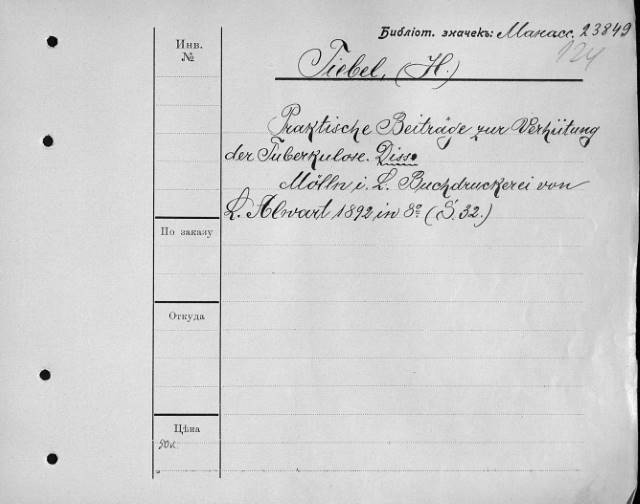 Библіот. значекъ: Манасс. 23849
124
Инв.
№
Tiebel, (H.)
Praktische Beiträge zur Verhütung
der Tuberkulose. Diss.
Mölln i. L. Buchdruckerei von
L. Alwart 1892 in 8º (S. 32.)
По заказу
Откуда
Цѣна
90к.